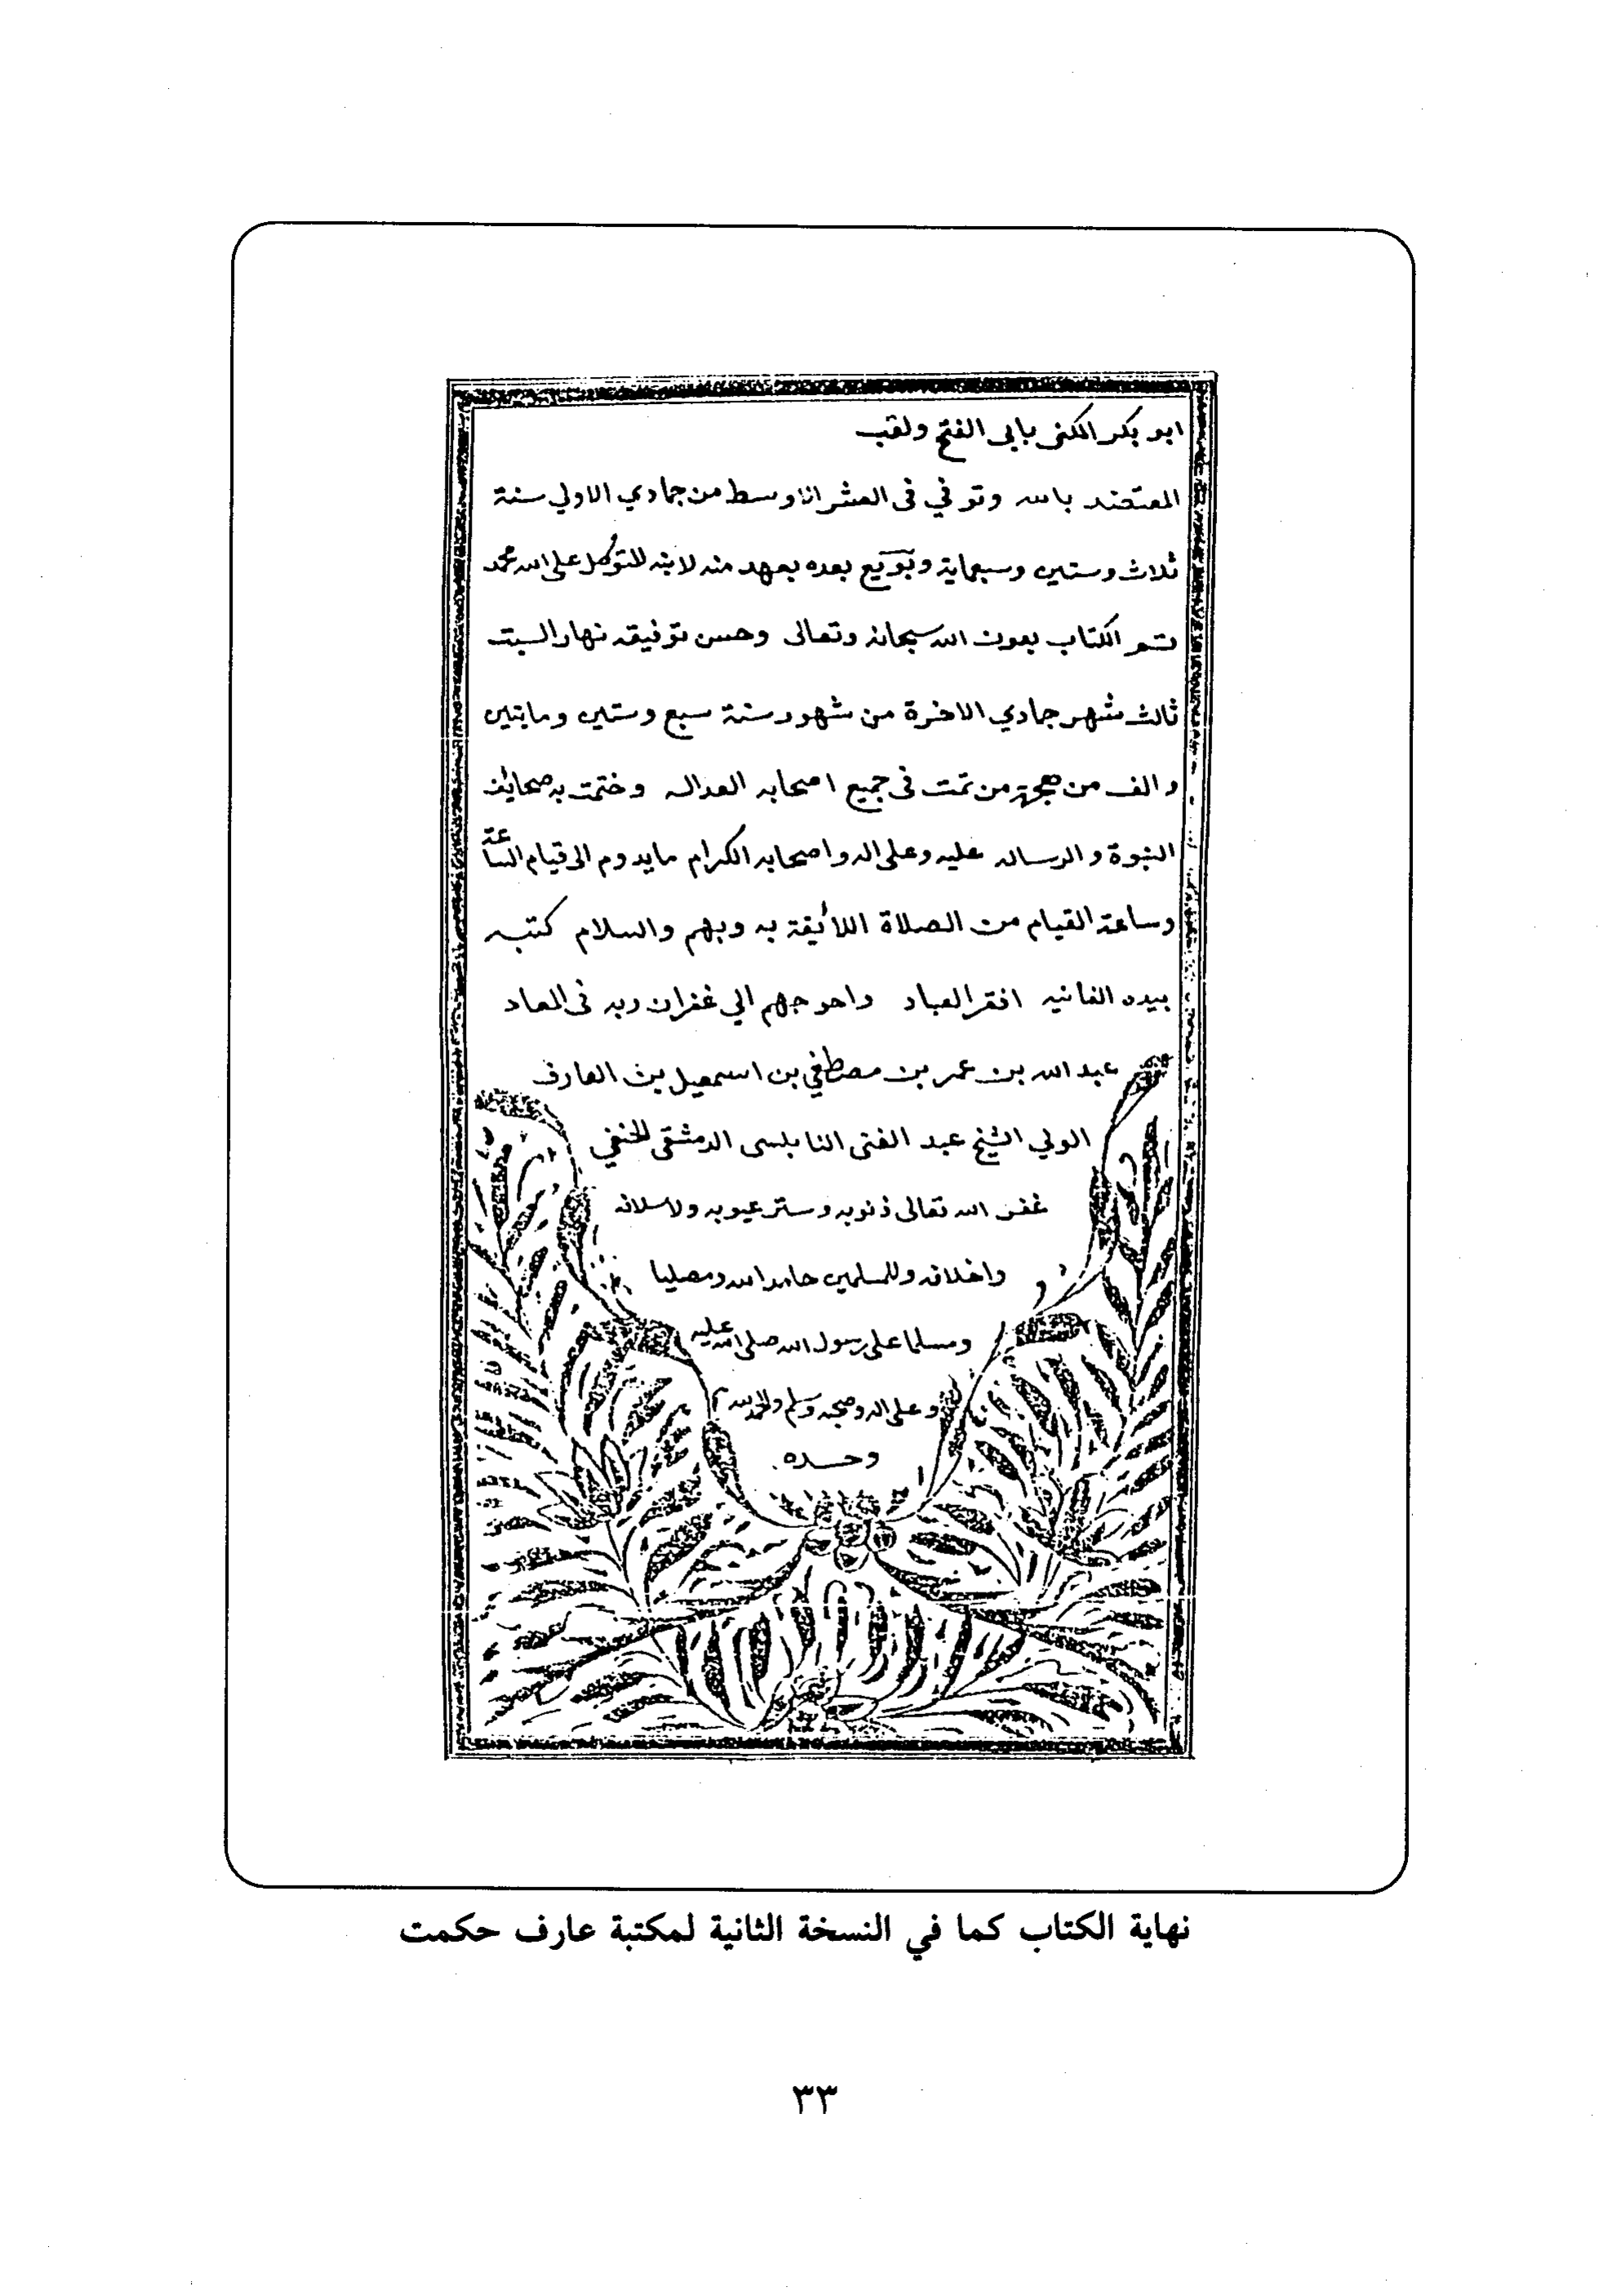 ابو بكر المكنى بابى الفتح ولقب
المعتضد بالله وتوفي فى العشر الاوسط من جمادي الاولي سنة
ثلاث وستين وسبعماية وبويع بعده بعهد منه لابنه المتوكل على الله محمد
وتم الكتاب بعون الله سبحانه وتعالى وحسن توفيقه نهار السبت
ثالث شهر جمادي الاخرة من شهور سنة سبع وستين ومايتين
والف من هجرة من تمت فى جميع اصحابه العداله وختمت به صحايف
النبوة والرساله عليه وعلى اله واصحابه الكرام مايدوم الى قيام الساعة
وساعة القيام من الصلاة اللائيقة به وبهم والسلام كتبه
بيده الفانيه افقر العباد واحوجهم الي غفران ربه فى المعاد
عبد الله بن عمر بن مصطفي بن اسمعيل بن العارف
الولي الشيخ عبد الغنى النابلسى الدمشقى الحنفي
غفر الله تعالى ذنوبه وستر عيوبه ولاسلافه
واخلافه وللمسلمين حامدا لله ومصليا
ومسلما على رسول الله صلى الله عليه
وعلى اله وصحبه وسلم والحمد لله
وحده
نهاية الكتاب كما في النسخة الثانية لمكتبة عارف حكمت
٣٣